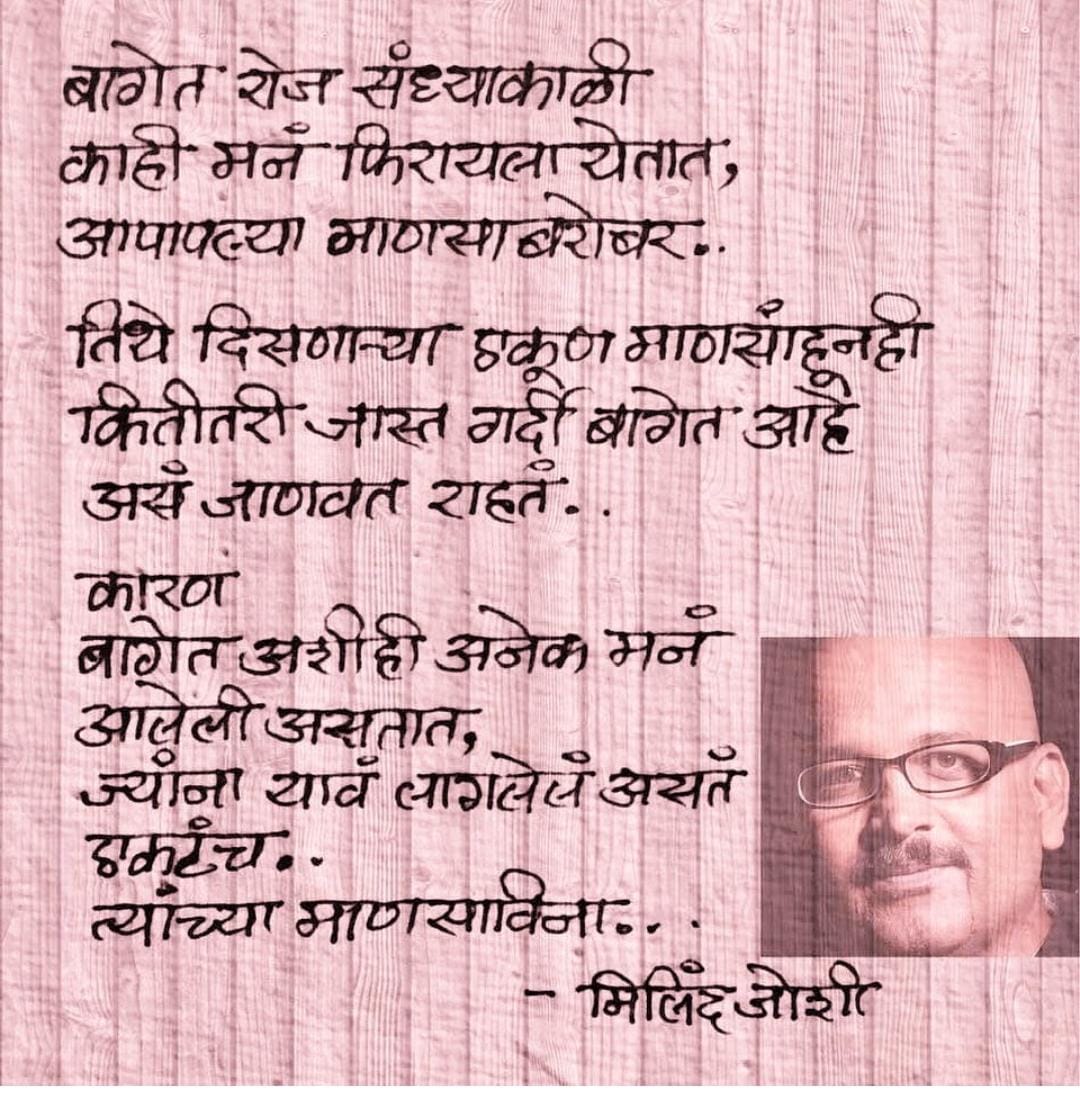 बागेत रोज संध्याकाळी
काही मनं फिरायला येतात,
आपापल्या माणसाबरोबर..
तिथे दिसणाऱ्या एकूण माणसांहूनही
कितीतरी जास्त गर्दी बागेत आहे
असं जाणवत राहतं..
कारण
बागेत अशीही अनेक मनं
आलेली असतात,
ज्यांना यावं लागलेलं असतं
एकटंच..
त्यांच्या माणसाविना...
- मिलिंद जोशी